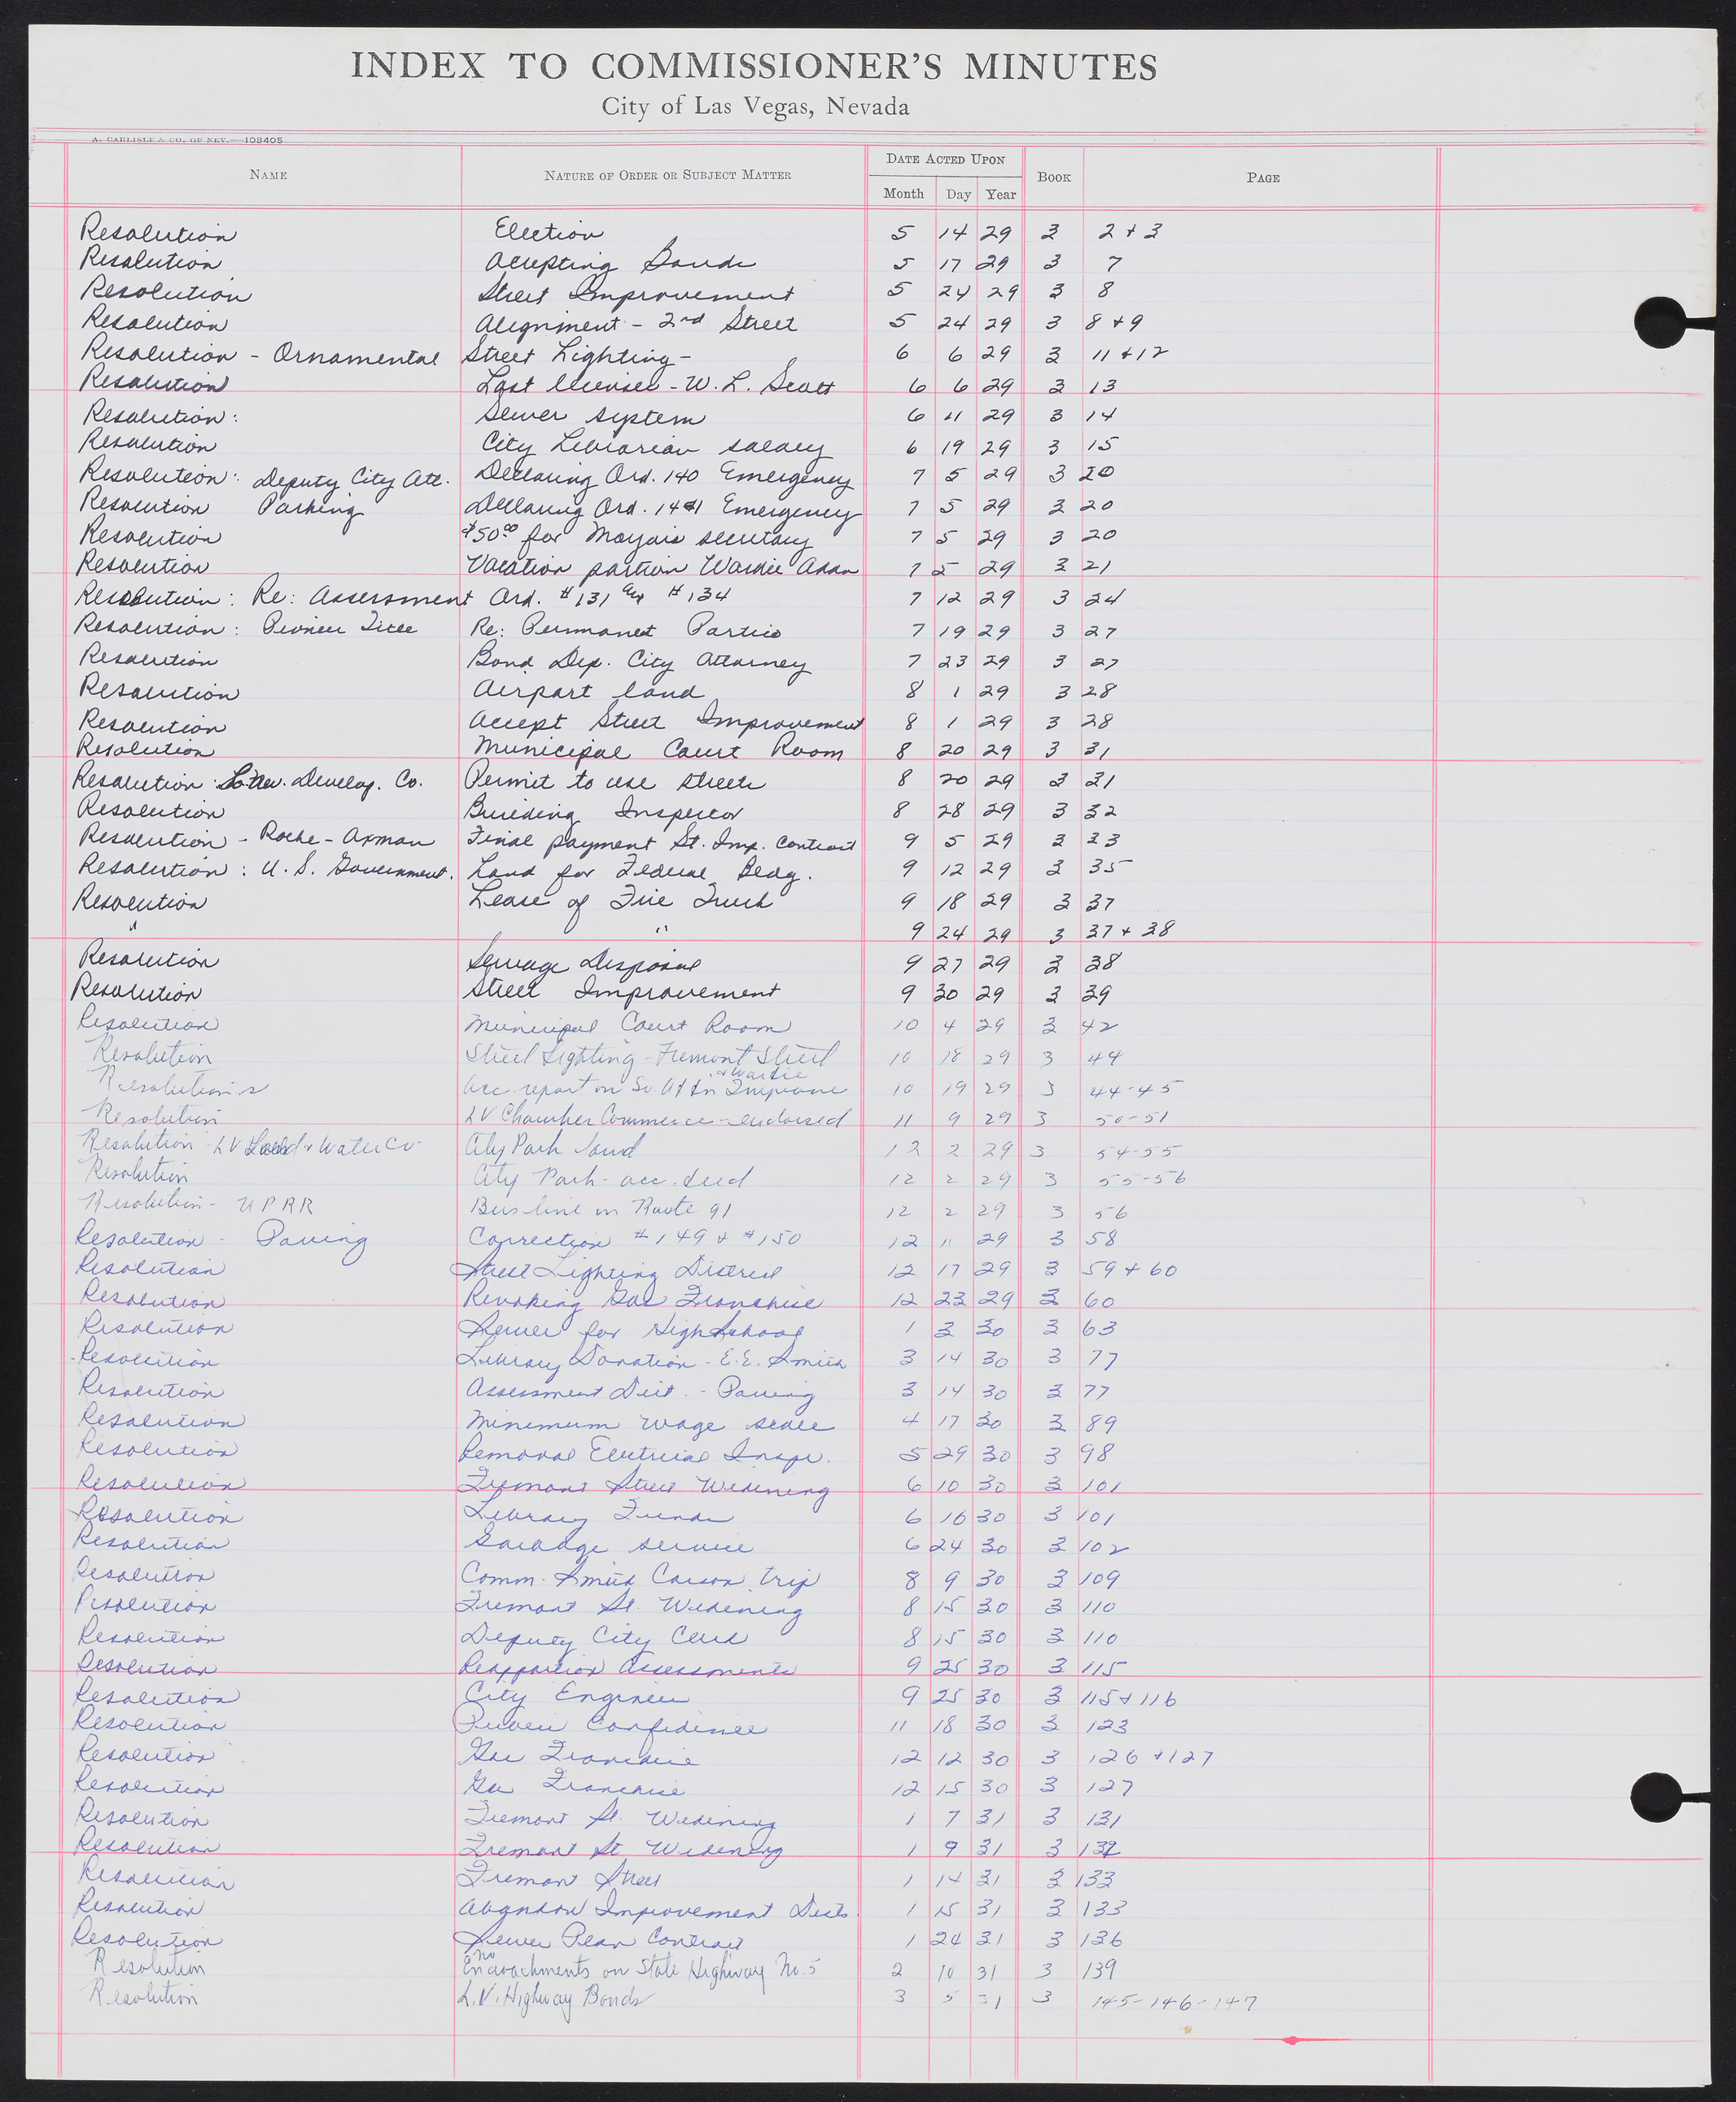 INDEX TO COMMISSIONER'S MINUTES
City of Las Vegas, Nevada
A. CARLISLE & CO. OF NEV.—108405
NAME NATURE OF ORDER OR SUBJECT MATTER DATE ACTED UPON Month Day Year BOOK PAGE
Resolution Election 5 14 29 3 2 + 3
Resolution Accepting Bonds 5 17 29 3 7
Resolution Street Improvement 5 24 29 3 8
Resolution Alignment - 2nd Street 5 24 29 3 8 + 9
Resolution - Ornamental Street Lighting - 6 6 29 3 11 + 12
Resolution Lost licenses - W. L. Scott 6 6 29 3 13
Resolution: Sewer system 6 11 29 3 14
Resolution City Librarian salary 6 19 29 3 15
Resolution: Deputy City Att. Declaring Ord. 140 Emergency 7 5 29 3 20
Resolution Parking Declaring Ord. 141 Emergency 7 5 29 3 20
Resolution $50.00 for Mayors secretary 7 5 29 3 20
Resolution Vacation portion Wardie Addn 7 5 29 3 21
Resolution: Re: Assessment Ord. #131 #134 7 12 29 3 24
Resolution: Pioneer Title Re: Permanet 7 19 29 3 27
Resolution Bond Dep. City Attorney 7 23 29 3 27
Resolution Airport land 8 1 29 3 28
Resolution Accept Street Improvement 8 1 29 3 28
Resolution Municipal Court Room 8 20 29 3 31
Resolution So. Nev. Develop. Co. Permit to use streets 8 20 29 3 31
Resolution Building Inspector 8 28 29 3 32
Resolution - Roche - Final payment St. Imp. Contract 9 5 29 3 33
Resolution: U. S. Government. Land for Federal Bldg. 9 12 29 3 35
Resolution Lease of Fire Truck 9 18 29 3 37
" " 9 24 29 3 37 + 38
Resolution Sewage Disposal 9 27 29 3 38
Resolution Street Improvement 9 30 29 3 39
Resolution Municipal Court Room 10 4 29 3 42
Resolution Street Lighting - Fremont Street 10 18 29 3 44
Resolutions Acc. report on So. + Wardie Improve 10 19 29 3 44-45
Resolution LV Chamber Commerce - endorsed 11 9 29 3 50-51
Resolution - LV Land & Water Co City Park land 12 2 29 3 54-55
Resolution City Park - acc. deed 12 2 29 3 55-56
Resolution - UPRR Bus line on Route 91 12 2 29 3 56
Resolution - Paving Correction #149 & #150 12 11 29 3 58
Resolution Street Lighting District 12 17 29 3 59 + 60
Resolution Revoking Gas Franchise 12 23 29 3 60
Resolution Sewer for High School 1 3 30 3 63
Resolution Library Donation - E. E. Smith 3 14 30 3 77
Resolution Assessment Dist. - Paving 3 14 30 3 77
Resolution Minimum wage scale 4 17 30 3 89
Resolution Removal Electrical Inspr. 5 29 30 3 98
Resolution Fremont Street Widening 6 10 30 3 101
Resolution Library Funds 6 10 30 3 101
Resolution Garbage service 6 24 30 3 102
Resolution Comm. Smith Carson trip 8 9 30 3 109
Resolution Fremont St. Widening 8 15 30 3 110
Resolution Deputy City Clerk 8 15 30 3 110
Resolution Reapportion Assessments 9 25 30 3 115
Resolution City Engineer 9 25 30 3 115 + 116
Resolution Confidence 11 18 30 3 123
Resolution Gas Franchise 12 12 30 3 126 + 127
Resolution Gas Franchise 12 15 30 3 127
Resolution Fremont St. Widening 1 7 31 3 131
Resolution Fremont St Widening 1 9 31 3 132
Resolution Fremont Street 1 14 31 3 133
Resolution Abandon Improvement Dists. 1 15 31 3 133
Resolution Sewer Plan Contract 1 24 31 3 136
Resolution no Encroachments on State Highway No. 5 2 10 31 3 139
Resolution L.V. Highway Bonds 3 5 31 3 145-146-147